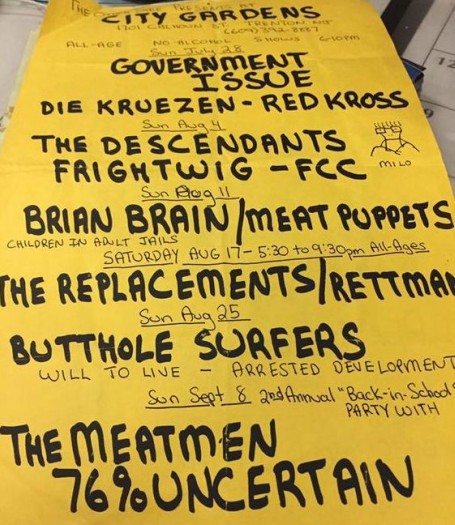 THE
PRESENTS AT
CITY GARDENS
1701 CALHOUN ST. TRENTON
(609) 392-8887
ALL-AGE NO ALCOHOL SHOWS 6-10PM
Sun July 28
GOVERNMENT
ISSUE
DIE KRUEZEN - RED KROSS
Sun Aug 4
THE DESCENDANTS
FRIGHTWIG - FCC
MILO
Sun Aug 11
BRIAN BRAIN/MEAT PUPPETS
CHILDREN IN ADULT JAILS
SATURDAY AUG 17 - 5:30 to 9:30pm All-Ages
THE REPLACEMENTS/RETTMAN
Sun Aug 25
BUTTHOLE SURFERS
WILL TO LIVE - ARRESTED DEVELOPMENT
Sun Sept 8 2nd Annual "Back-in-School"
PARTY WITH
THE MEATMEN
76% UNCERTAIN